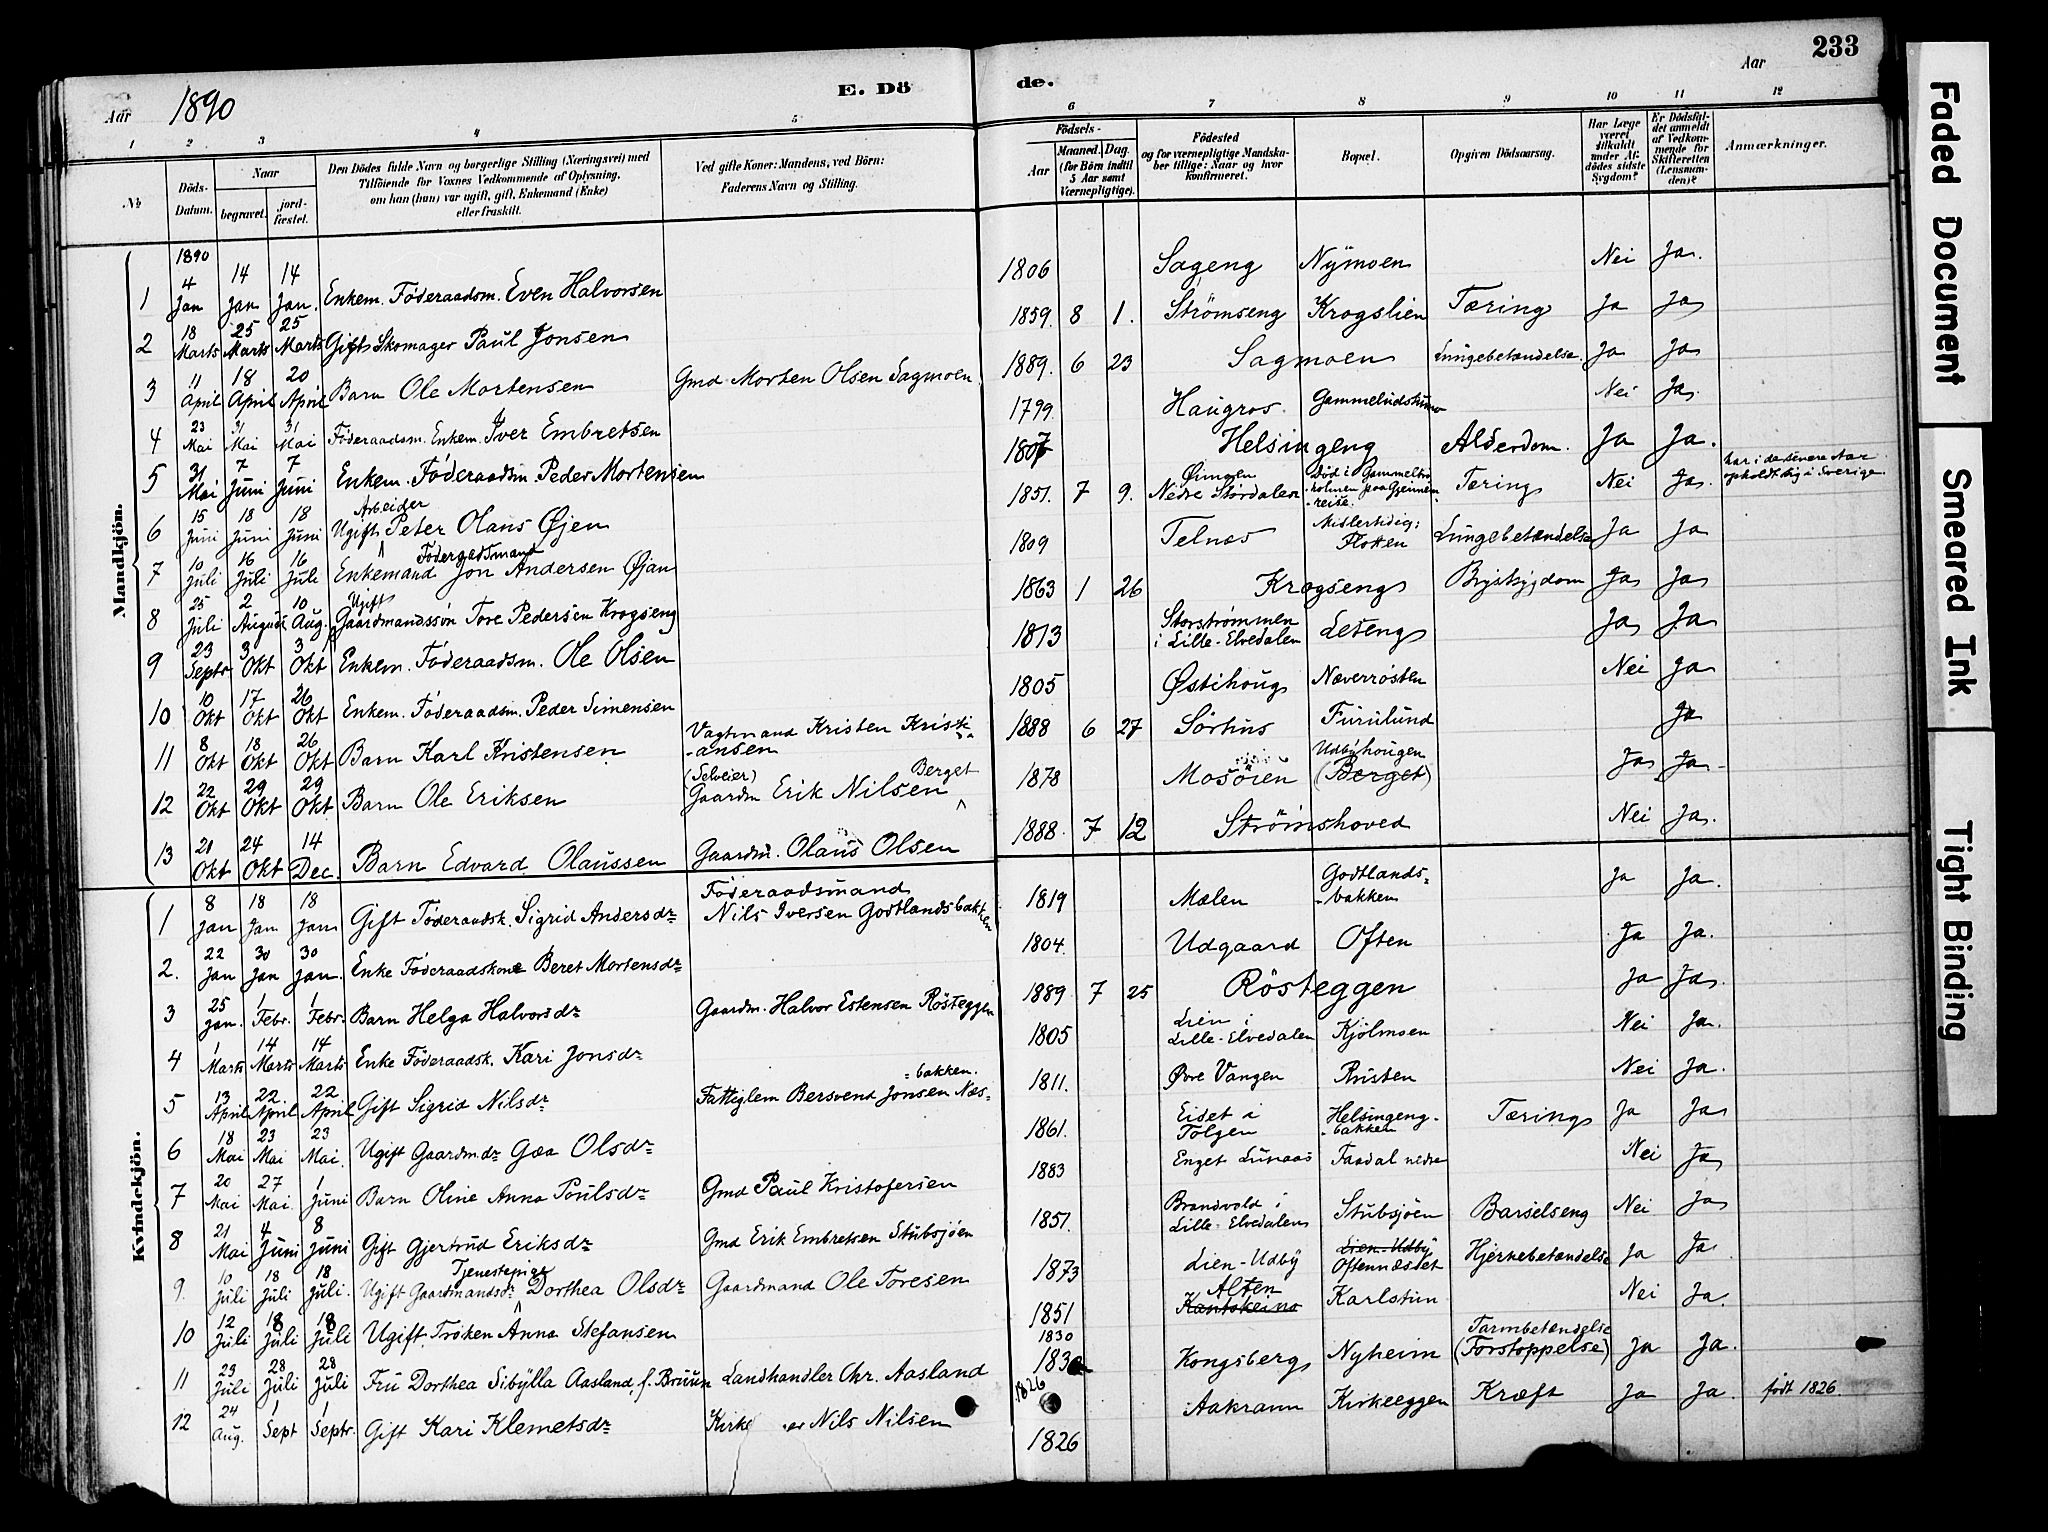 Aar 1890 E. Dö
de. Aar 233
1 2 3 4 5 6 7 8 9 10 11 12
No
Döds-Datum.
Naar begravet. jordfæstet.
Den Dödes fulde Navn og borgerlige Stilling (Næringsvei) med
Tilföiende for Voxnes Vedkommende af Oplysning,
om han (hun) var ugift, gift, Enkemand (Enke)
eller fraskilt.
Ved gifte Koner: Mandens, ved Börn:
Faderens Navn og Stilling.
Födsels-
Aar Maaned. Dag.
(for Börn indtil
5 Aar samt
Værnepligtige).
Födested
og for værnepligtige Mandska-
ber tillige: Naar og hvor
konfirmeret.
Bopæl.
Opgiven Dödsaarsag.
Har Læge
været
tilkaldt
under Af-
dödes sidste
Sygdom?
Er Dödsfal-
det anmeldt
af Vedkom-
mende for
Skifteretten
(Lensman-
den)?
Anmærkninger.
Mandkjön.
1890
1 4 Jan 14 Jan 14 Jan. Enkem. Föderaadsm. Even Halvorsen 1806 Sageng Nÿmoen Nei Ja.
2 18 Marts 25 Marts 25 Marts Gift Skomager Paul Jonsen 1859. 8 1. Strömseng Krogslien Tæring Ja Ja
3 11 April 18 April 20 April Barn Ole Mortensen Gmd Morten Olsen Sagmoen. 1889. 6 23 Sagmoen Lungebetændelse. Ja Ja
4 23 Mai 31 Mai 31 Mai Föderaadsm. Enkem. Iver Embretsen 1799. Haugros Nei Ja.
5 31 Mai 7 Juni 7 Juni Enkem. Föderaadsm Peder Mortensen 1807 Helsingeng Alderdom. Ja Ja.
6 15 Juni 18 Juni 18 Juni Ugift Arbeider Peter Olaus Øjen 1851. 7 9. Øiungen Nedre Stördalen Död i Gammelbo-
holmen paa Gjennem-
reise. Tæring Nei Ja. har i de senere Aar
opholdt sig i Sverige.
7 10 Juli 16 Juli 16 Juli Enkemand Föderaadsmand Jon Andersen Øjan 1809 Telnæs Midlertidig:
Flotten Lungebetændelse Ja Ja
8 25 Juli 2 August 10 Aug. Ugift Gaardmandssön Tore Pedersen Krogseng 1863 1 26 Krogseng Brystsygdom Ja Ja
9 23 Septr 3 Okt 3 Okt Enkem. Föderaadsm. Ole Olsen 1813 Storströmmen
i Lille-Elvedalen Leteng Ja Ja
10 10 Okt 17 Okt 26 Okt Enkem. Föderaadsm. Peder Simensen 1805 Østihoug Næverrösten Nei Ja
11 8 Okt 18 Okt 26 Okt Barn Karl Kristensen Vagtmand Kristen Kristi-
-ansen 1888 6 27 Sörhus Furulund Ja
12 22 Okt 29 Okt 29 Okt Barn Ole Eriksen (Selveier)
Gaardm Erik Nilsen Berget 1878 Mosöien Udbyhougen
(Berget) Ja Ja
13 21 Okt 24 Okt 14 Dec. Barn Edvard Olaussen Gaardm. Olaus Olsen 1888. 7 12 Strömshoved Nei Ja.
Kvindekjön.
1 8 Jan 18 Jan 18 Jan Gift Föderaadsk. Sigrid Andersdr Föderaadsmand
Nils Iversen Godtlandsbakken 1819 Mælen Godtlands-
-bakken Ja Ja.
2. 22 Jan 30 Jan 30 Jan. Enke Föderaadskone Beret Mortensdr 1804. Udgaard Often Ja Ja.
3 25 Jan. 1 Febr. 1 Febr. Barn Helga Halvorsdr Gaardm. Halvor Estensen Rösteggen 1889 7 25 Rösteggen Ja Ja.
4 1 Marts 14 Marts 14 Marts Enke Föderaadsk. Kari Jonsdr 1805 Lien i
Lille-Elvedalen Kjölmoen Nei Ja.
5 13 April 22 April 22 April Gift Sigrid Nilsdr Fattiglem Bersvend Jonsen Næs-
-bakken. 1811. Øvre Vangen Risten Nei Ja.
6 18 Mai 23 Mai 23 Mai. Ugift Gaardmdr Goa Olsdr 1861. Eidet i
Tolgen Helsingeng-
-bakken Tæring Ja Ja
7 20 Mai 27 Mai 1 Juni Barn Oline Anna Poulsdr Gmd Paul Kristofersen 1883 Enget Lunaas Faadal nedre Nei Ja
8 21 Mai 4 Juni 8 Juni Gift Gjertrud Eriksdr Gmd Erik Embretsen Stubsjöen 1851. Brandvold i
Lille-Elvedalen Stubsjöen Barselseng Nei Ja
9. 10 Juli 18 Juli 18 Juli. Ugift Gaardmandsdr Tjenestepige Dorthea Olsdr Gaardmand Ole Toresen 1873 Lien-Udbÿ Lien-Udbÿ
Oftennæstet Hjernebetændelse Ja Ja
10 12 Juli 18 Juli 18 Juli Ugift Fröken Anna Stefansen 1851 Alten
Kautokeino Karlstun Nei Ja.
11 23 Juli 28 Juli 28 Juli Fru Dorthea Sibylla Aasland, f. Bruun Landhandler Chr. Aasland 1830 Kongsberg Nyheim Tarmbetændelse
(Forstoppelse) Ja Ja.
12 24 Aug. 1 Sept 1 Septr. Gift Kari Klemetsdr Kirke er Nils Nilsen 1826 Aakrann Kirkeeggen Kræft Ja Ja födt 1826
1826
Faded Document
Smeared Ink
Tight Binding